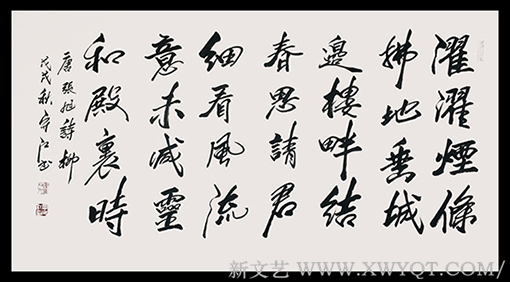 濯濯煙條
拂地垂城
邊樓畔結
春思請君
細看風流
意未減靈
和殿裏時
唐張旭詩柳
戊戌秋江书
新文艺 WWW.XWYQT.COM/